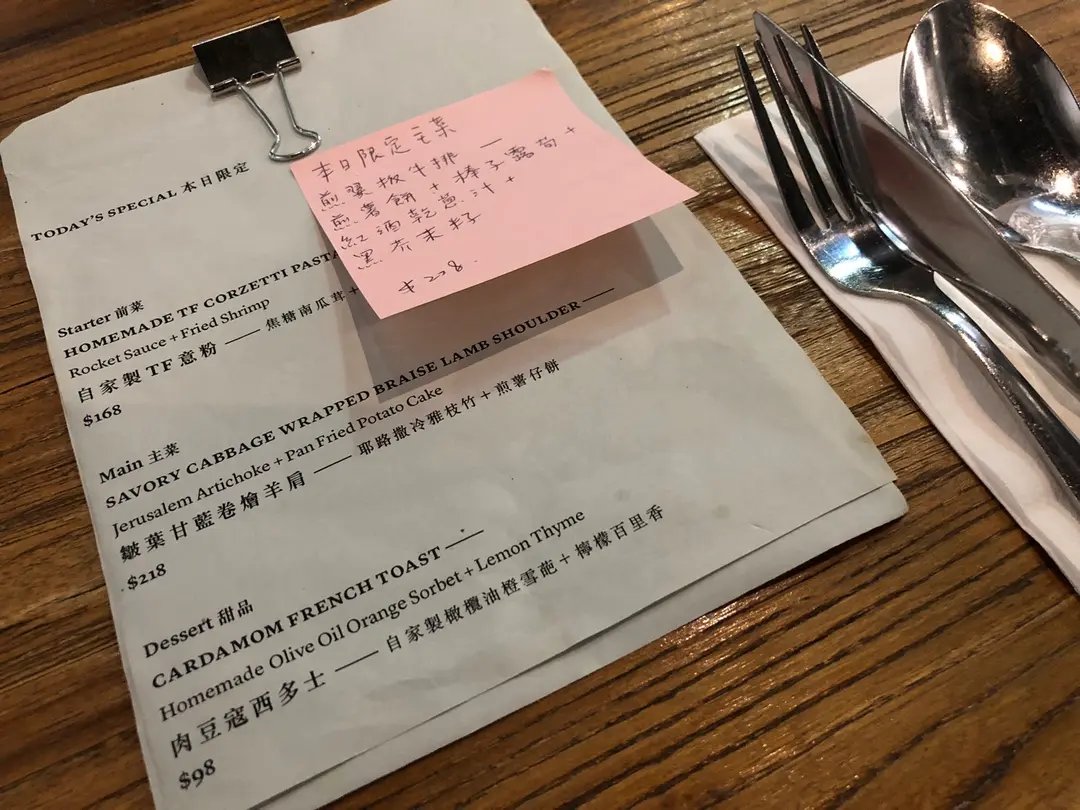 TODAY'S SPECIAL 本日限定
本日限定主菜
煎翼板牛排 —
煎薯餅 + 棒子露筍 +
紅酒乾葱汁 +
黑芥末籽
$208.
Starter 前菜
HOMEMADE TF CORZETTI PASTA
Rocket Sauce + Fried Shrimp
自家製TF意粉 —— 焦糖南瓜茸 +
$168
Main 主菜
SAVORY CABBAGE WRAPPED BRAISE LAMB SHOULDER ——
Jerusalem Artichoke + Pan Fried Potato Cake
皺葉甘藍卷燴羊肩 —— 耶路撒冷雅枝竹 + 煎薯仔餅
$218
Dessert 甜品
CARDAMOM FRENCH TOAST ——
Homemade Olive Oil Orange Sorbet + Lemon Thyme
肉豆寇西多士 —— 自家製橄欖油橙雪葩 + 檸檬百里香
$98